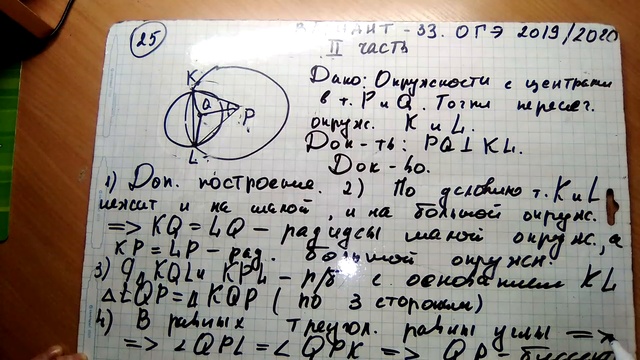 25
ВАРИАНТ - 33. ОГЭ 2019/2020
II часть
K
Q
P
L
Дано: Окружности с центрами
в т. P и Q. Точки пересеч.
окруж. K и L.
Док-ть: PQ ⊥ KL.
Док-во.
1) Доп. построение. 2) По условию т. K и L
лежит и на малой, и на большой окруж.
=> KQ = LQ - радиусы малой окруж., а
KP = LP - рад. большой окружн.
3) KQL и KPL - р/б с основанием KL
Δ LQP = Δ KQP (по 3 сторонам)
4) В равных треугол. равны углы =>
=> ∠QPL = ∠QPK => QP -